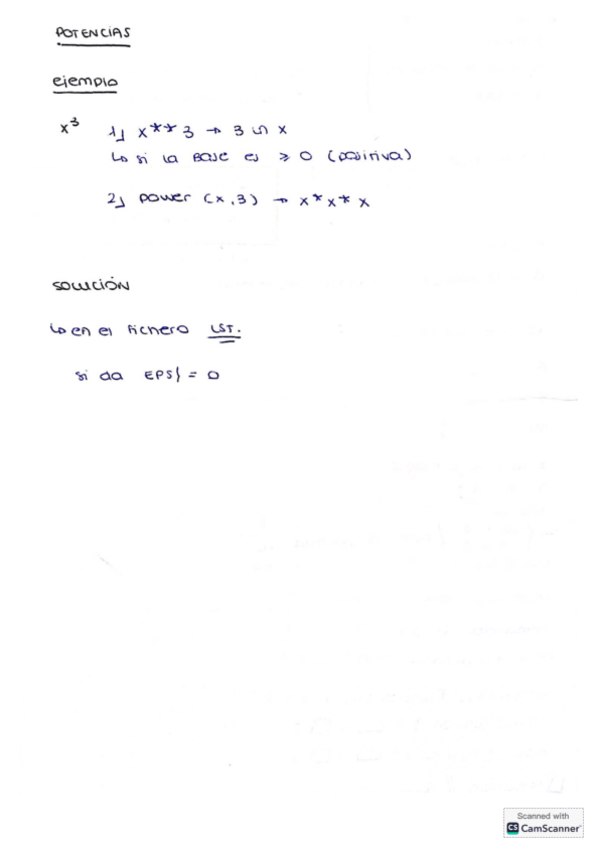 POTENCIAS
ejemplo
x³ 1) x**3 → 3 ln x
↳ si la base es ≥ 0 (positiva)
2) power (x,3) → x*x*x
SOLUCIÓN
↳ en el fichero LST.
si da EPS) = 0
Scanned with
CS CamScanner